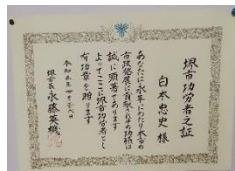 堺市功労者之証
白本忠史様
あなたは永年にわたり本市の
市政発展に貢献されその功績は
誠に顕著であります
よってここに堺市功労者とし
有功章を贈ります
堺市長 永藤英機